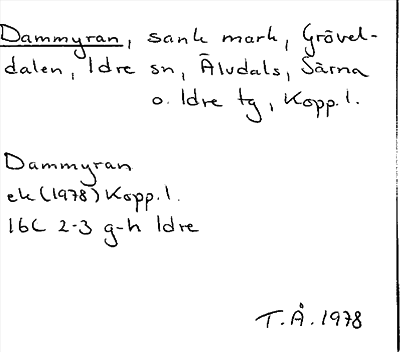 Dammyran, sank mark, Grövel-
dalen, Idre sn, Älvdals, Särna
o. Idre tg, Kopp. l.
Dammyran
ek (1978) Kopp. l.
16C 2-3 g-h Idre
T. Å. 1978